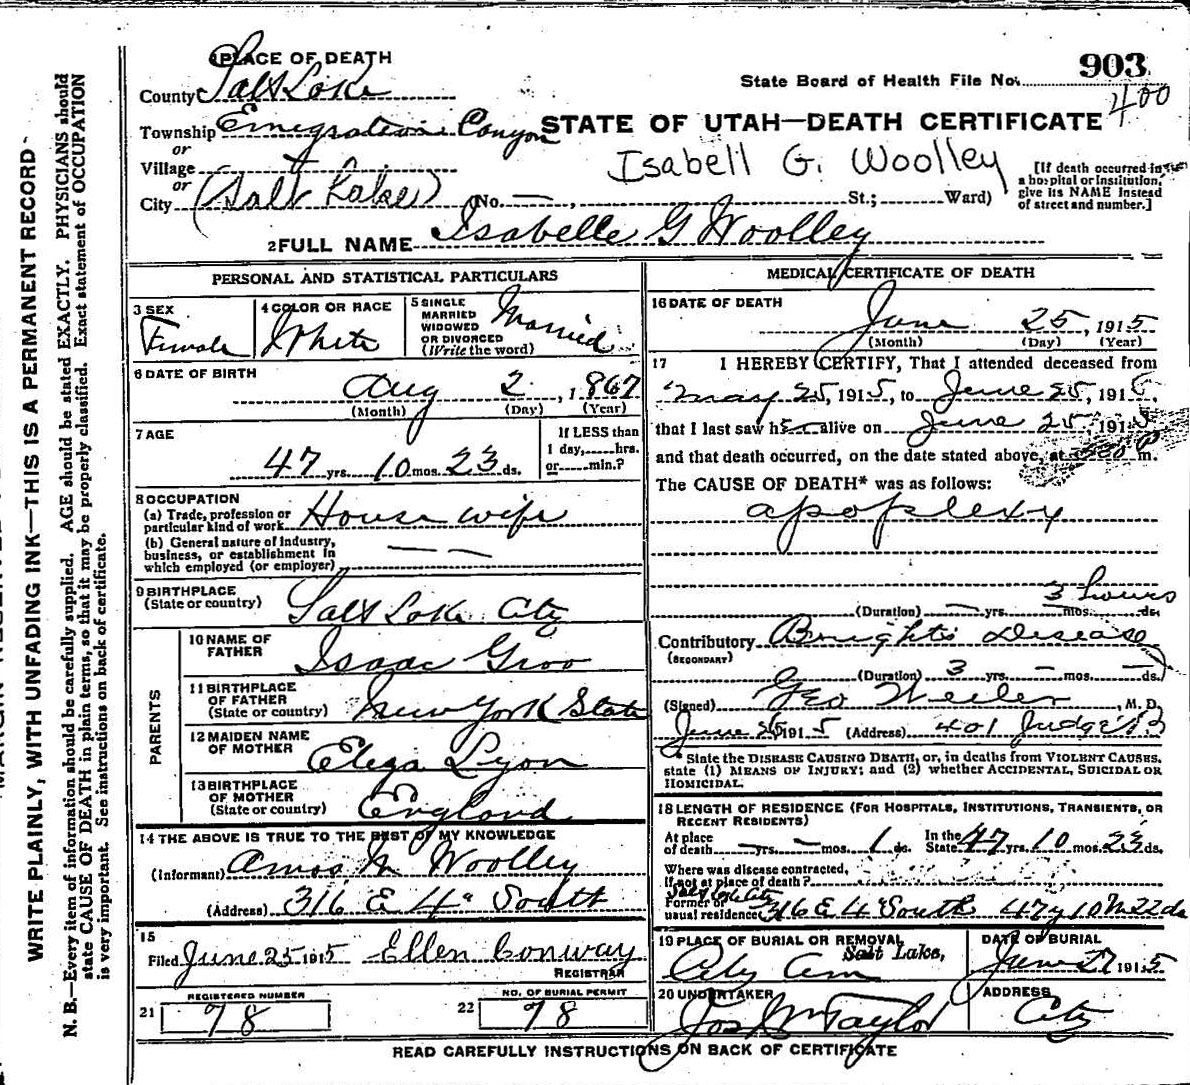 WRITE PLAINLY, WITH UNFADING INK—THIS IS A PERMANENT RECORD
N. B.—Every item of information should be carefully supplied. AGE should be stated EXACTLY. PHYSICIANS should
state CAUSE OF DEATH in plain terms, so that it may be properly classified. Exact statement of OCCUPATION
is very important. See instructions on back of certificate.
PLACE OF DEATH
County Salt Lake
Township Emigration Canyon
or
Village
or
City (Salt Lake) (No. — , St.; Ward)
State Board of Health File No. 903
400
STATE OF UTAH—DEATH CERTIFICATE
Isabell G. Woolley
[If death occurred in
a hospital or Institution,
give its NAME Instead
of street and number.]
2 FULL NAME Isabelle G Woolley
PERSONAL AND STATISTICAL PARTICULARS
3 SEX
Female
4 COLOR OR RACE
White
5 SINGLE
MARRIED
WIDOWED
OR DIVORCED
(Write the word)
Married
6 DATE OF BIRTH
Aug 2, 1867
(Month) (Day) (Year)
7 AGE
47 yrs. 10 mos. 23 ds.
If LESS than
1 day, hrs.
or min.?
8 OCCUPATION
(a) Trade, profession or
particular kind of work House wife
(b) General nature of Industry,
business, or establishment in
which employed (or employer) — —
9 BIRTHPLACE
(State or country) Salt Lake City
PARENTS
10 NAME OF
FATHER Isaac Groo
11 BIRTHPLACE
OF FATHER
(State or country) New York State
12 MAIDEN NAME
OF MOTHER Eliza Lyon
13 BIRTHPLACE
OF MOTHER
(State or country) England
14 THE ABOVE IS TRUE TO THE BEST OF MY KNOWLEDGE
(Informant) Amos M Woolley
(Address) 316 E 4" South
15
Filed June 25 1915 Ellen Conway
REGISTRAR
REGISTERED NUMBER
21 78
NO. OF BURIAL PERMIT
22 78
MEDICAL CERTIFICATE OF DEATH
16 DATE OF DEATH
June 25, 1915
(Month) (Day) (Year)
17 I HEREBY CERTIFY, That I attended deceased from
May 25, 1915, to June 25, 1915,
that I last saw her alive on June 25, 1915
and that death occurred, on the date stated above, at 530 P m.
The CAUSE OF DEATH* was as follows:
apoplexy
3 hours
(Duration) — yrs. mos. ds.
Contributory Brights Disease
(SECONDARY)
(Duration) 3 yrs. — mos. — ds.
(Signed) Geo , M. D.
June 26 1915 (Address) 401 Judge
* State the DISEASE CAUSING DEATH, or, in deaths from VIOLENT CAUSES,
state (1) MEANS OF INJURY; and (2) whether ACCIDENTAL, SUICIDAL OR
HOMICIDAL.
18 LENGTH OF RESIDENCE (FOR HOSPITALS, INSTITUTIONS, TRANSIENTS, OR
RECENT RESIDENTS)
At place
of death — yrs. — mos. 1 ds. In the
State 47 yrs. 10 mos. 23 ds.
Where was disease contracted,
If not at place of death?
Salt Lake City
Former or
usual residence 316 E 4" South 47 y 10 M 22 ds
19 PLACE OF BURIAL OR REMOVAL
Salt Lake,
City Cem
DATE OF BURIAL
June 27 1915
20 UNDERTAKER
Jos Wm Taylor
ADDRESS
City
READ CAREFULLY INSTRUCTIONS ON BACK OF CERTIFICATE